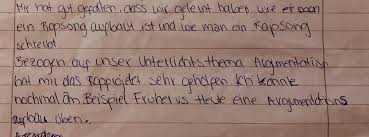 Mir hat gut gefallen, dass wir gelernt haben wie man
ein Rapsong aufbaut ist und wie man ein Rapsong
schreibt
Bezogen auf unser Unterrichtsthema Argumentation
hat mir das Rapprojekt sehr geholfen. Ich konnte
nochmal am Beispiel Früher vs Heute eine Argumentations
aufbau üben.